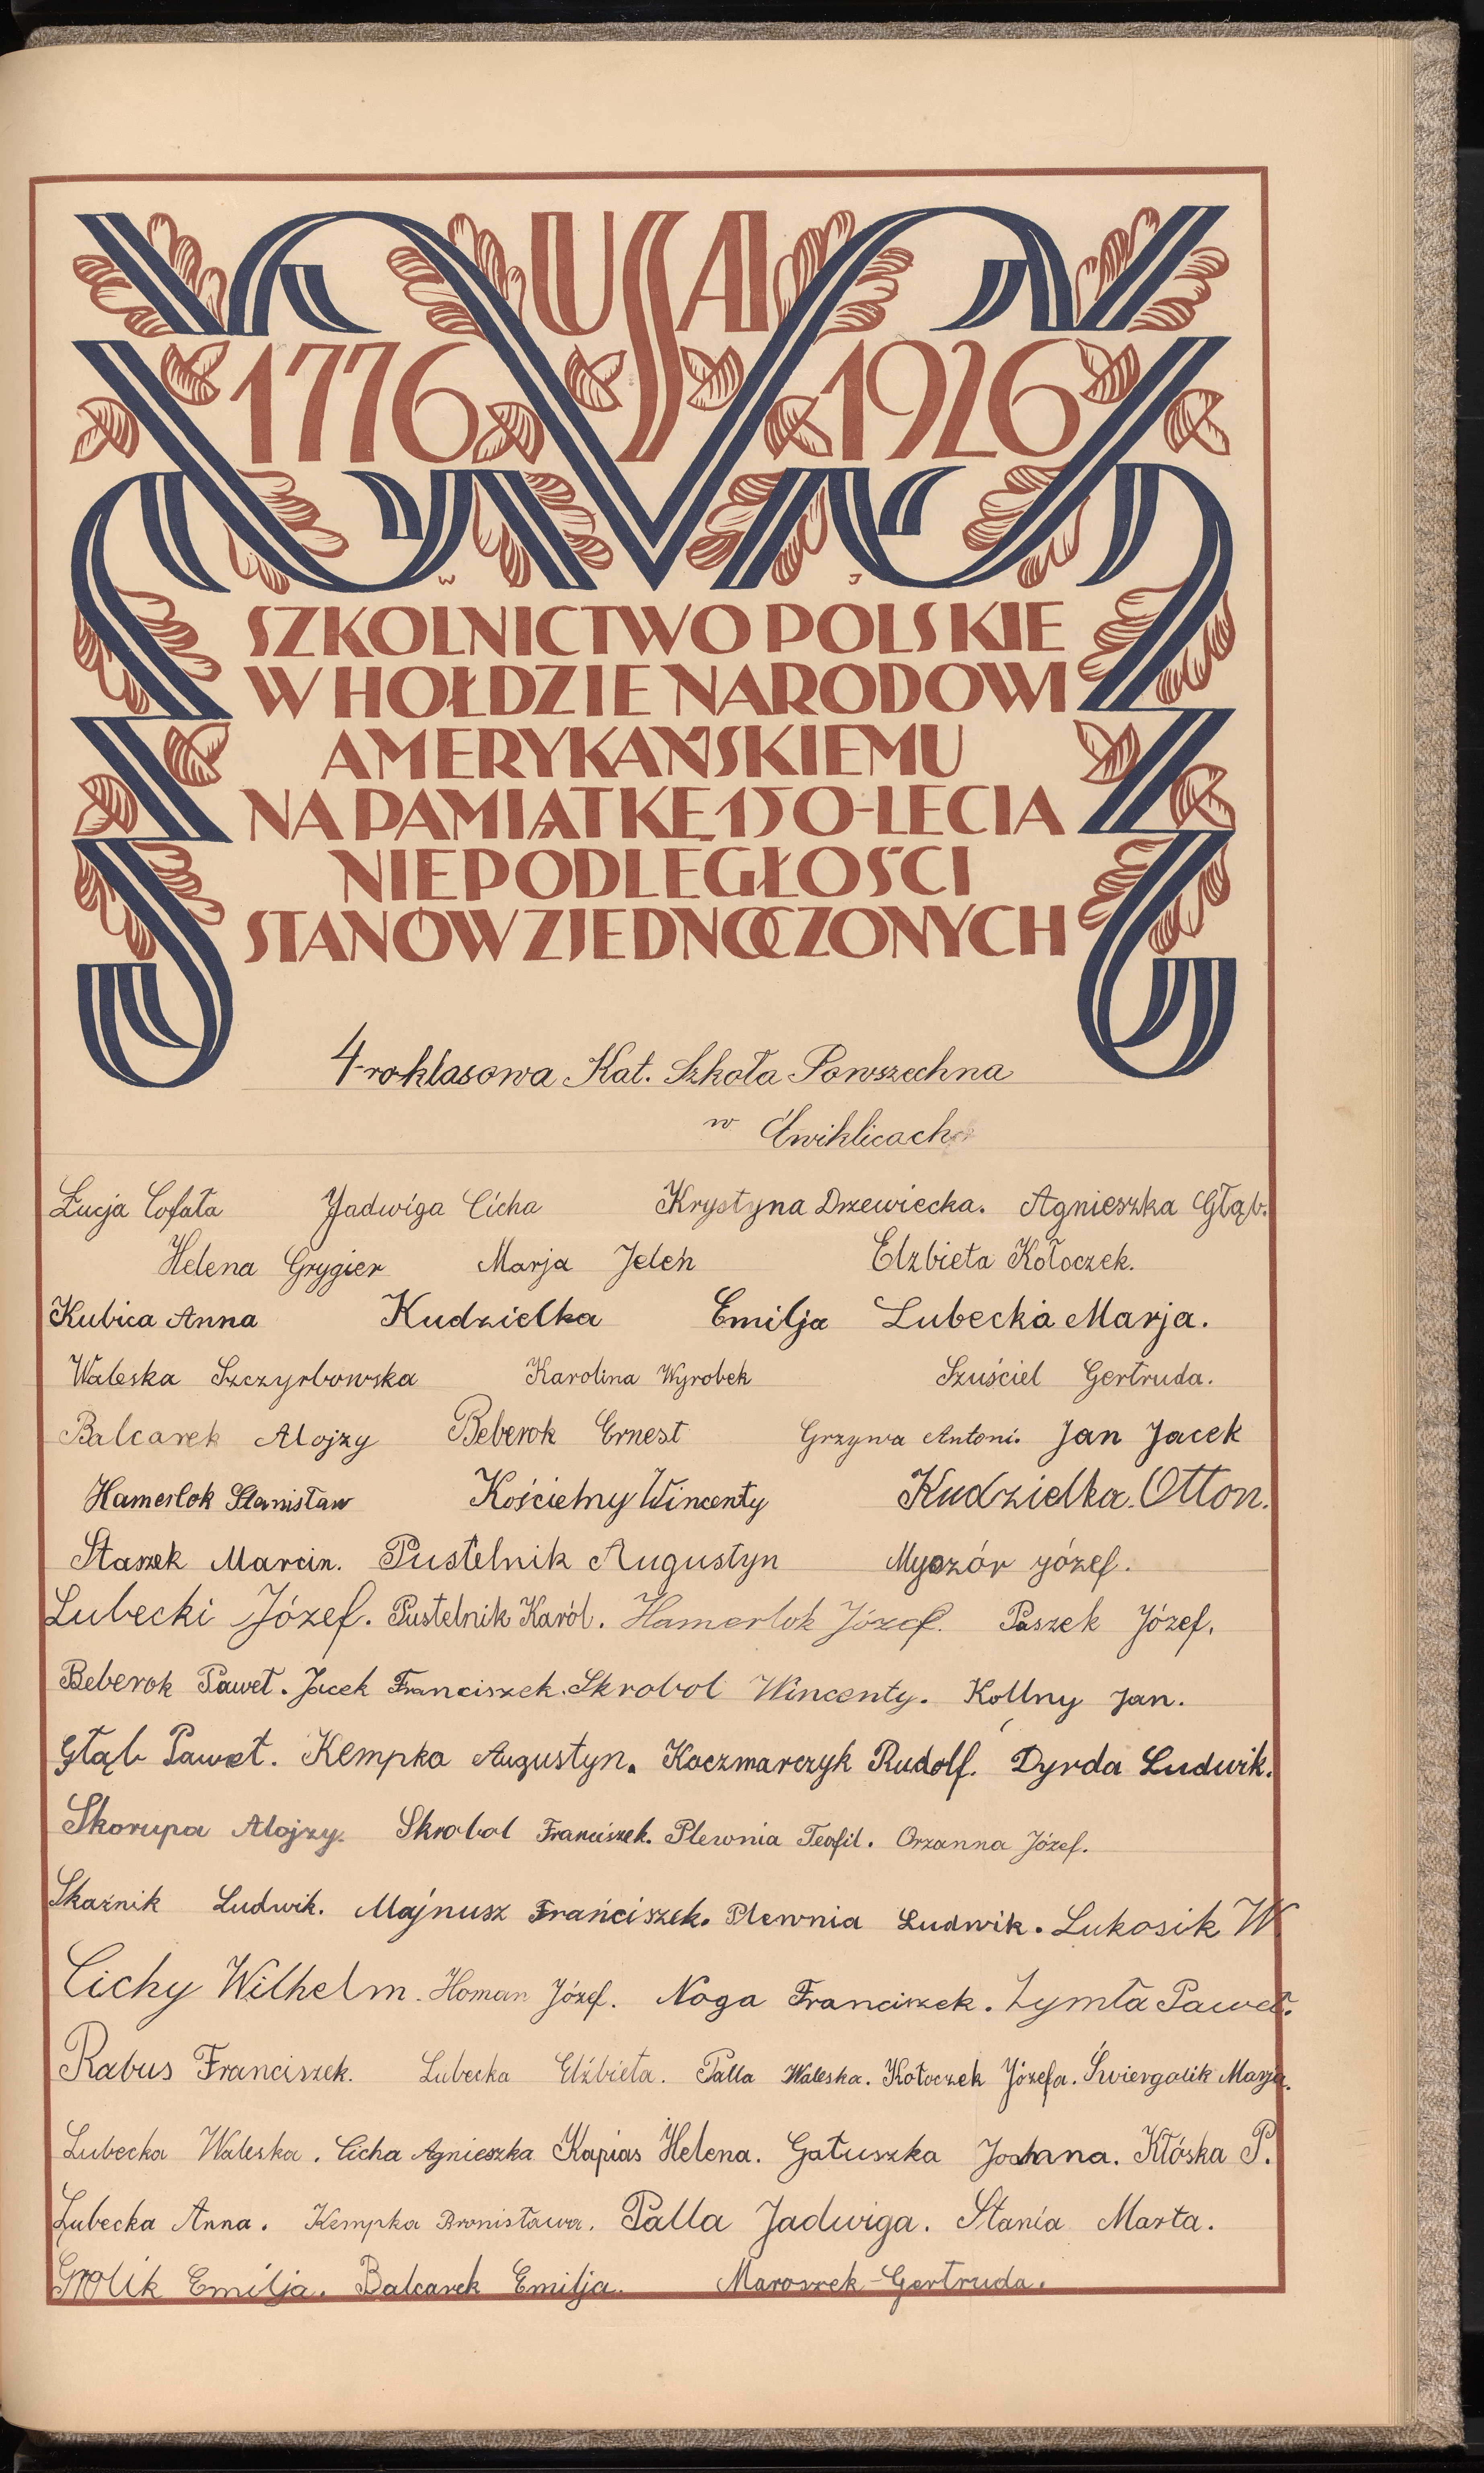 USA
1776 1926
W J
SZKOLNICTWO POLSKIE
W HOŁDZIE NARODOWI
AMERYKAŃSKIEMU
NA PAMIĄTKĘ 150-LECIA
NIEPODLEGŁOŚCI
STANÓW ZJEDNOCZONYCH
4-roklasowa Kat. Szkoła Powszechna
w Ćwiklicach
Łucja Cofała Jadwiga Cicha Krystyna Drzewiecka. Agnieszka Głąb.
Helena Grygier Marja Jeleń Elzbieta Kołoczek.
Kubica Anna Kudzielka Emilja Lubecka Marja.
Waleska Szczyrbowska Karolina Wyrobek Szuściel Gertruda.
Balcarek Alojzy Beberok Ernest Grzywa Antoni. Jan Jacek
Hamerlok Stanisław Kościelny Wincenty Kudzielka. Otton.
Staszek Marcin. Pustelnik Augustyn Myszór józef.
Lubecki Józef. Pustelnik Karól. Hamerlok Józef. Paszek Józef.
Beberok Paweł. Jacek Franciszek. Skrobol Wincenty. Kollny Jan.
Głąb Paweł. Kempka Augustyn. Kaczmarczyk Rudolf. Dyrda Ludwik.
Skorupa Alojzy. Skrobol Franciszek. Plewnia Teofil. Orzanna Józef.
Skaźnik Ludwik. Majnusz Franciszek. Plewnia Ludwik. Lukosik W.
Cichy Wilhelm. Homan Józef. Noga Franciszek. Zymła Paweł.
Rabus Franciszek. Lubecka Elżbieta. Palla Waleska. Kołoczek Józefa. Świergolik Marja.
Lubecka Waleska. Cicha Agnieszka Kapias Helena. Gałuszka Joanna. Kłóska P.
Lubecka Anna. Kempka Bronisława. Palla Jadwiga. Stania Marta.
Grolik Emilja. Balcarek Emilja. Maroszek-Gertruda.